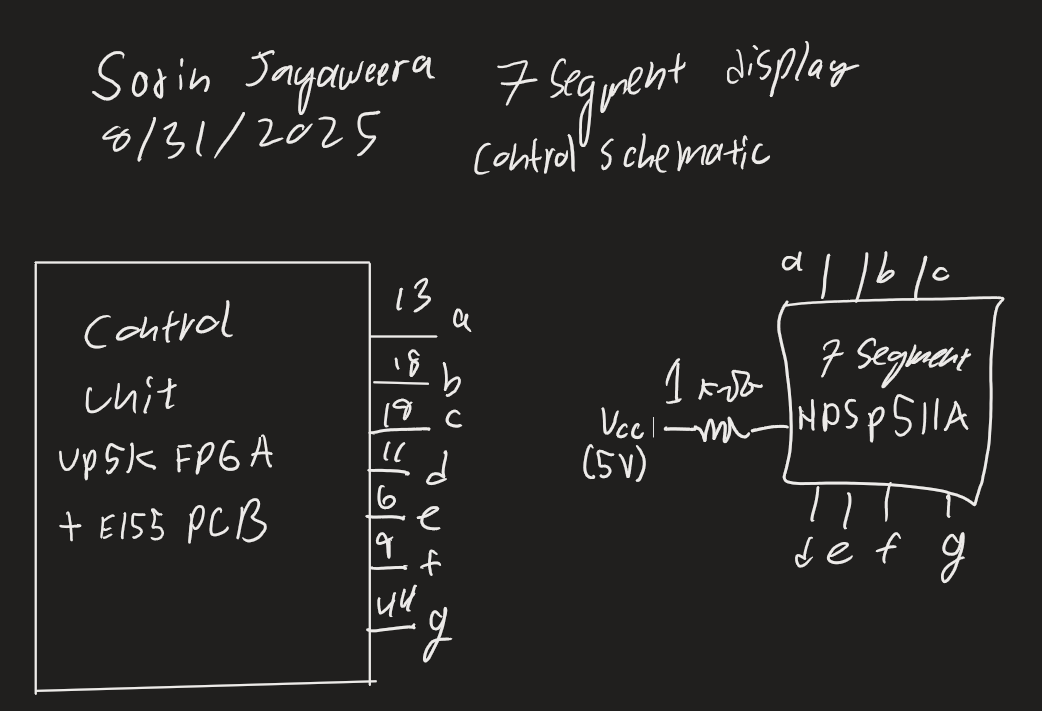 Sorin Jayaweera
8/31/2025
7 Segment display
control schematic
Control
Unit
up5k FPGA
+ E155 PCB
13 a
18 b
19 c
11 d
6 e
9 f
44 g
a b c
7 Segment
HDSP511A
1
Vcc
(5V)
d e f g